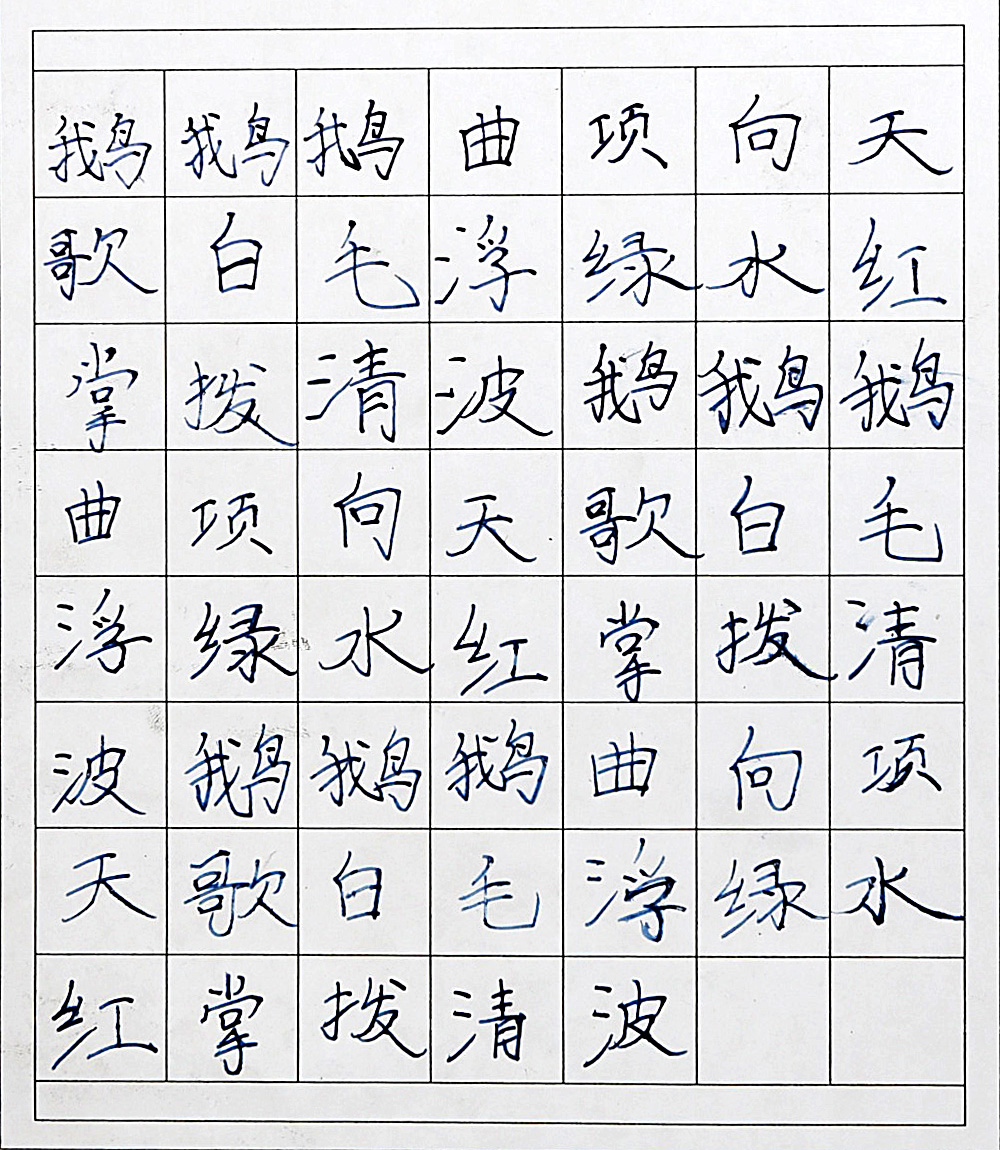 鹅鹅鹅曲项向天
歌白毛浮绿水红
掌拨清波鹅鹅鹅
曲项向天歌白毛
浮绿水红掌拨清
波鹅鹅鹅曲向项
天歌白毛浮绿水
红掌拨清波